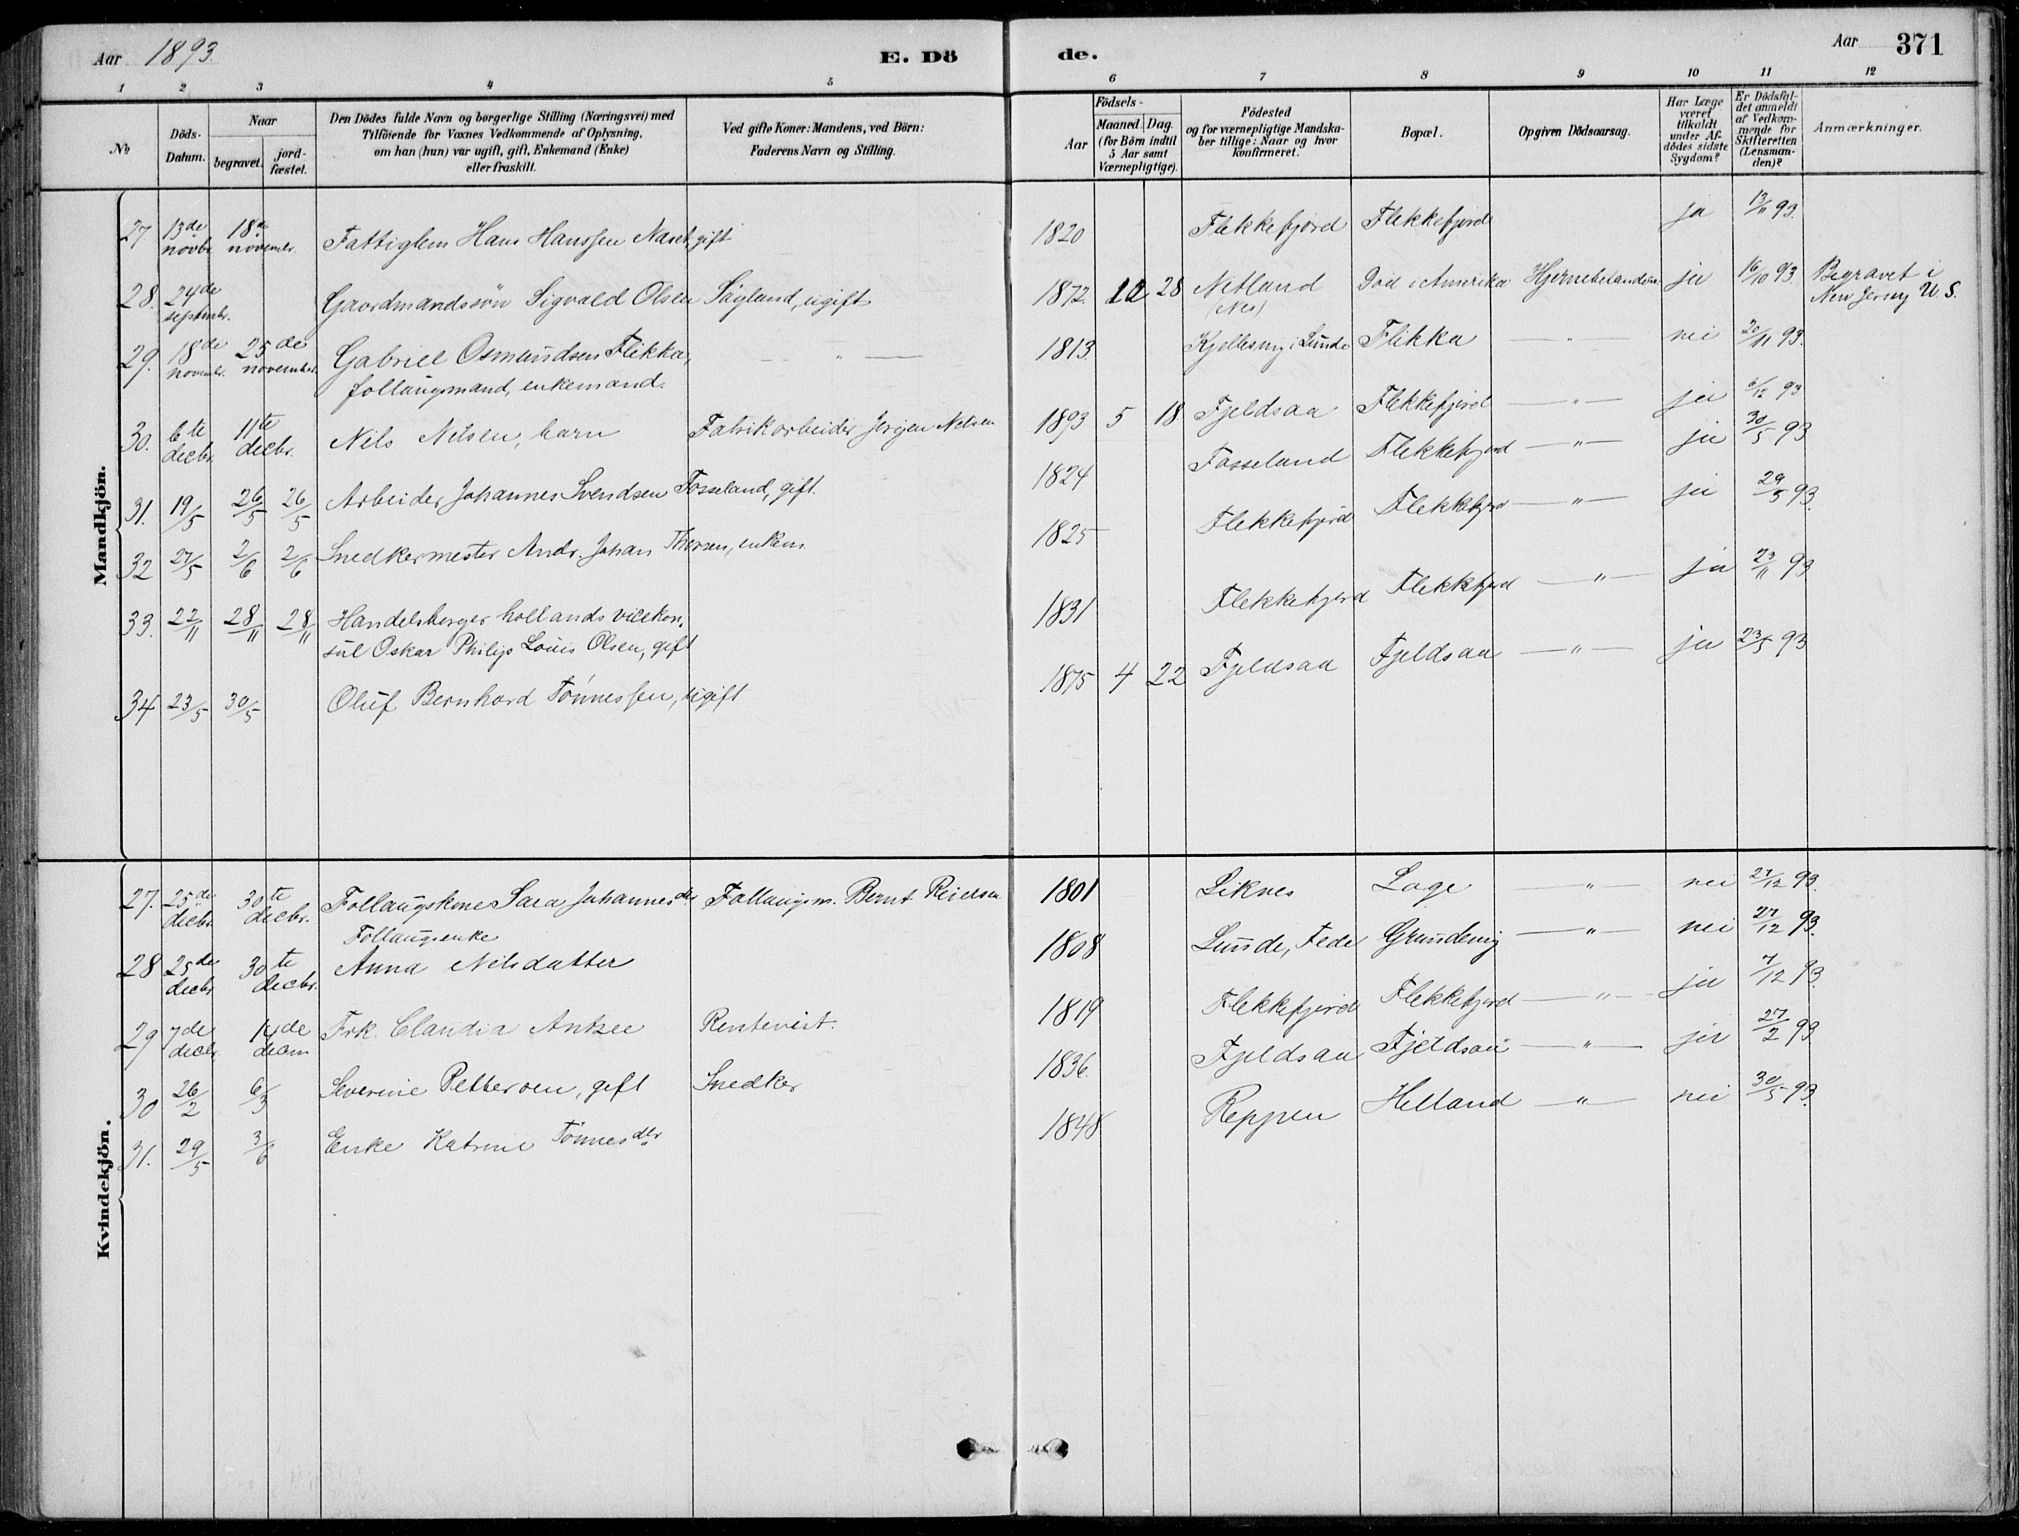 Aar 1893. E. Dö de. Aar 371
1 2 3 4 5 6 7 8 9 10 11 12
No
Döds-Datum.
Naar
begravet.
jord-fæstet.
Den Dödes fulde Navn og borgerlige Stilling (Næringsvei) med
Tilföiende for Voxnes Vedkommende af Oplysning,
om han (hun) var ugift, gift, Enkemand (Enke)
eller fraskilt.
Ved gifte Koner: Mandens, ved Börn:
Faderens Navn og Stilling.
Födsels-
Aar
Maaned. Dag.
(for Börn indtil
5 Aar samt
Værnepligtige).
Födested
og for værnepligtige Mandska-
ber tillige: Naar og hvor
konfirmeret.
Bopæl.
Opgiven Dödsaarsag.
Har Læge
været
tilkaldt
under Af-
dödes sidste
Sygdom?
Er Dödsfal-
det anmeldt
af Vedkom-
mende for
Skifteretten
(Lensman-
den)?
Anmærkninger.
Mandkjön.
27 13de novbr 18de novembr. Fattiglem Hans Hanssen gift 1820 Flekkefjord Flekkefjord ja 93.
28. 24de septmbr. Gaardmandssön Sigvald Olsen Sägland, ugift 1872 12 28 Netland (Nes) Död i Amerika ja 16/10 93. Begravet i New Jersey U. S.
29. 18de novembr. 25de november. Gabriel Osmundsen Flikka, follaugsmand, enkemand. — " — 1813 i Lunde Flikka — " — nei 20/11 93.
30. 6te decbr. 11te decbr. Nils Nilsen, barn Fabrikarbeider Jörgen Nilsen 1893 5 18 Fjeldsaa Flekkefjord — " — ja 6/12 93
31. 19/5 26/5 26/5 Arbeider Johannes Svendsen Fosseland, gift. 1824 Fosseland Flekkefjord — " — ja 30/5 93
32 27/5 2/6 2/6 Snedkermester Andr. Johan enkem. 1825 Flekkefjord Flekkefjord — " — ja 29/5 93.
33. 22/11 28/11 28/11 Handelsborger hollands vicekon-
sul Oskar Philip Louis Olsen, gift 1831 Flekkefjord Flekkefjord — " — ja 23/11 93
34 23/5 30/5 Oluf Bernhard Tönnessen, ugift 1875 4 22 Fjeldsaa Fjeldsaa — " — ja 23/5 93
Kvindekjön.
27. 25de decbr. 30te decbr. Follaugskone Sara Johannesdtr Follaugsm. Bernt Reiersen 1801 Liknes Loge — " — nei 27/12 93.
28 25de decbr. 30te decbr. Follaugsenke
Anna Nilsdatter 1808 Lunde, Fede Grundevig — " — nei 27/12 93.
29 7de decbr. 14de decm Frk. Claudia Rentevist. 1819 Flekkefjord Flekkefjord — " — ja 7/12 93.
30 26/2 6/3 Severine Pettersen, gift Snedker 1836. Fjeldsaa Fjeldsaa — " — ja 27/2 93
31. 29/5 3/6 Enke Katrine Tönnesdtr 1848 Reppen Helland — " — nei 30/5 93.